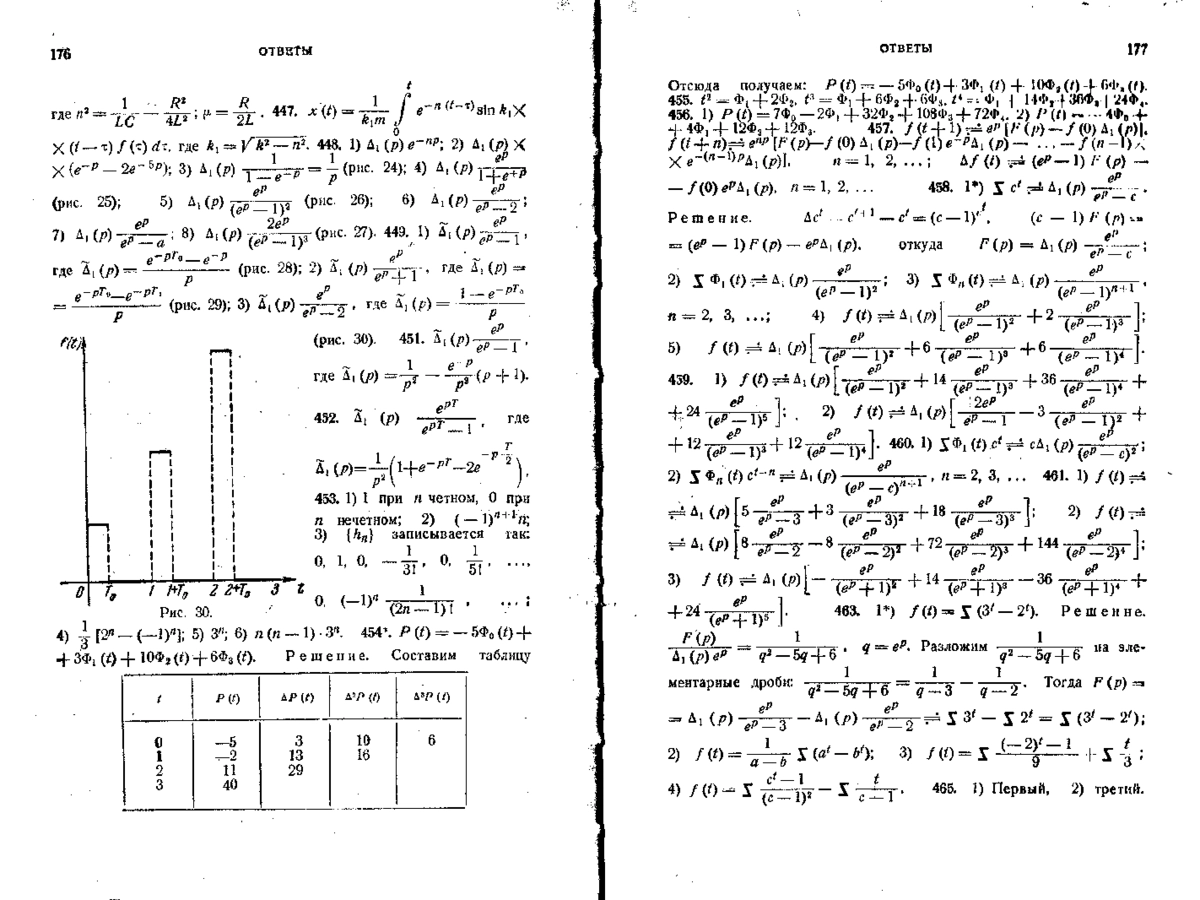 176
ОТВЕТЫ
где n² = 1/LC − R²/4L²; μ = R/2L. 447. x(t) = 1/(k₁m) ∫₀ᵗ e^{−n(t−τ)} sin k₁×
×(t−τ) f(τ) dτ, где k₁ = √(k²−n²). 448. 1) Δ₁(p) e^{−np}; 2) Δ₁(p) ×
×(e^{−p} − 2e^{−5p}); 3) Δ₁(p) 1/(1−e^{−p}) = 1/p (рис. 24); 4) Δ₁(p) e^p/(1+e^{+p})
(рис. 25); 5) Δ₁(p) e^p/(e^p−1)² (рис. 26); 6) Δ₁(p) e^p/(e^p−2);
7) Δ₁(p) e^p/(e^p−a); 8) Δ₁(p) 2e^p/(e^p−1)³ (рис. 27). 449. 1) Δ̃₁(p) e^p/(e^p−1),
где Δ̃₁(p) = (e^{−pT₀}−e^{−p})/p (рис. 28); 2) Δ̃₁(p) e^p/(e^p+1), где Δ̃₁(p) =
= (e^{−pT₀}−e^{−pT₁})/p (рис. 29); 3) Δ̃₁(p) e^p/(e^p−2), где Δ̃₁(p) = (1−e^{−pT₀})/p
(рис. 30). 451. Δ̃₁(p) e^p/(e^p−1),
где Δ̃₁(p) = 1/p² − e^{−p}/p² (p+1).
452. Δ̃₁(p) e^{pT}/(e^{pT}−1), где
Δ̃₁(p) = 1/p² (1+e^{−pT}−2e^{−p T/2}).
453. 1) 1 при n четном, 0 при
n нечетном; 2) (−1)^{n+1}n;
3) {hₙ} записывается так:
0, 1, 0, −1/3!, 0, 1/5!, ...,
0, (−1)ⁿ 1/(2n−1)!, ...;
F(t)
0 T₀ 1 1+T₀ 2 2+T₀ 3 t
Рис. 30.
4) 1/3 [2ⁿ−(−1)ⁿ]; 5) 3ⁿ; 6) n(n−1)·3ⁿ. 454*. P(t) = −5Φ₀(t) +
+ 3Φ₁(t) + 10Φ₂(t) + 6Φ₃(t). Решение. Составим таблицу
t P(t) ΔP(t) Δ²P(t) Δ³P(t)
0 −5 3 10 6
1 −2 13 16
2 11 29
3 40
ОТВЕТЫ
177
Отсюда получаем: P(t) = −5Φ₀(t) + 3Φ₁(t) + 10Φ₂(t) + 6Φ₃(t).
455. t² = Φ₁ + 2Φ₂, t³ = Φ₁ + 6Φ₂ + 6Φ₃, t⁴ = Φ₁ + 14Φ₂ + 36Φ₃ + 24Φ₄.
456. 1) P(t) = 7Φ₀ − 2Φ₁ + 32Φ₂ + 108Φ₃ + 72Φ₄. 2) P(t) = −4Φ₀ +
+ 4Φ₁ + 12Φ₂ + 12Φ₃. 457. f(t+1) ≓ e^p [F(p) − f(0) Δ₁(p)],
f(t+n) ≓ e^{np} [F(p) − f(0) Δ₁(p) − f(1) e^{−p}Δ₁(p) − ... − f(n−1) ×
× e^{−(n−1)p}Δ₁(p)], n = 1, 2, ...; Δf(t) ≓ (e^p−1) F(p) −
− f(0) e^pΔ₁(p), n = 1, 2, ... 458. 1*) S cᵗ ≓ Δ₁(p) e^p/(e^p−c).
Решение. Δcᵗ = c^{t+1} − cᵗ = (c−1)cᵗ, (c−1) F(p) =
= (e^p−1) F(p) − e^pΔ₁(p), откуда F(p) = Δ₁(p) e^p/(e^p−c);
2) S Φ₁(t) ≓ Δ₁(p) e^p/(e^p−1)²; 3) S Φₙ(t) ≓ Δ₁(p) e^p/(e^p−1)^{n+1},
n = 2, 3, ...; 4) f(t) ≓ Δ₁(p) [e^p/(e^p−1)² + 2 e^p/(e^p−1)³];
5) f(t) ≓ Δ₁(p) [e^p/(e^p−1)² + 6 e^p/(e^p−1)³ + 6 e^p/(e^p−1)⁴].
459. 1) f(t) ≓ Δ₁(p) [e^p/(e^p−1)² + 14 e^p/(e^p−1)³ + 36 e^p/(e^p−1)⁴ +
+ 24 e^p/(e^p−1)⁵]; 2) f(t) ≓ Δ₁(p) [2e^p/(e^p−1) − 3 e^p/(e^p−1)² +
+ 12 e^p/(e^p−1)³ + 12 e^p/(e^p−1)⁴]. 460. 1) S Φ₁(t) cᵗ ≓ cΔ₁(p) e^p/(e^p−c)²;
2) S Φₙ(t) c^{t−n} ≓ Δ₁(p) e^p/(e^p−c)^{n+1}, n = 2, 3, ... 461. 1) f(t) ≓
≓ Δ₁(p) [5 e^p/(e^p−3) + 3 e^p/(e^p−3)² + 18 e^p/(e^p−3)³]; 2) f(t) ≓
≓ Δ₁(p) [8 e^p/(e^p−2) − 8 e^p/(e^p−2)² + 72 e^p/(e^p−2)³ + 144 e^p/(e^p−2)⁴];
3) f(t) ≓ Δ₁(p) [− e^p/(e^p+1)² + 14 e^p/(e^p+1)³ − 36 e^p/(e^p+1)⁴ +
+ 24 e^p/(e^p+1)⁵]. 463. 1*) f(t) = S (3ᵗ − 2ᵗ). Решение.
F(p)/(Δ₁(p) e^p) = 1/(q²−5q+6), q = e^p. Разложим 1/(q²−5q+6) на эле-
ментарные дроби: 1/(q²−5q+6) = 1/(q−3) − 1/(q−2). Тогда F(p) =
= Δ₁(p) e^p/(e^p−3) − Δ₁(p) e^p/(e^p−2) ≓ S 3ᵗ − S 2ᵗ = S (3ᵗ − 2ᵗ);
2) f(t) = 1/(a−b) S (aᵗ − bᵗ); 3) f(t) = S ((−2)ᵗ−1)/9 + S t/3;
4) f(t) = S (cᵗ−1)/(c−1)² − S t/(c−1). 465. 1) Первый, 2) третий.